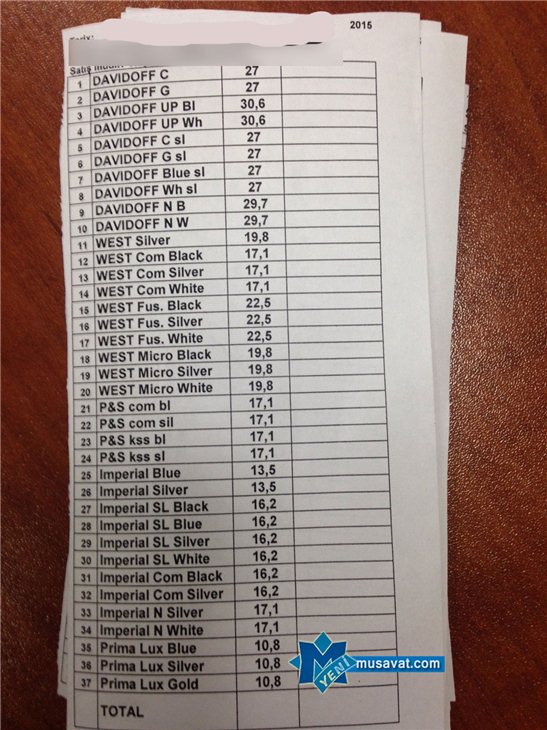 2015
Tarix:
Satış
1 DAVIDOFF C 27
2 DAVIDOFF G 27
3 DAVIDOFF UP Bl 30,6
4 DAVIDOFF UP Wh 30,6
5 DAVIDOFF C sl 27
6 DAVIDOFF G sl 27
7 DAVIDOFF Blue sl 27
8 DAVIDOFF Wh sl 27
9 DAVIDOFF N B 29,7
10 DAVIDOFF N W 29,7
11 WEST Silver 19,8
12 WEST Com Black 17,1
13 WEST Com Silver 17,1
14 WEST Com White 17,1
15 WEST Fus. Black 22,5
16 WEST Fus. Silver 22,5
17 WEST Fus. White 22,5
18 WEST Micro Black 19,8
19 WEST Micro Silver 19,8
20 WEST Micro White 19,8
21 P&S com bl 17,1
22 P&S com sil 17,1
23 P&S kss bl 17,1
24 P&S kss sl 17,1
25 Imperial Blue 13,5
26 Imperial Silver 13,5
27 Imperial SL Black 16,2
28 Imperial SL Blue 16,2
29 Imperial SL Silver 16,2
30 Imperial SL White 16,2
31 Imperial Com Black 16,2
32 Imperial Com Silver 16,2
33 Imperial N Silver 17,1
34 Imperial N White 17,1
35 Prima Lux Blue 10,8
36 Prima Lux Silver 10,8
37 Prima Lux Gold 10,8
TOTAL
M YENİ musavat.com